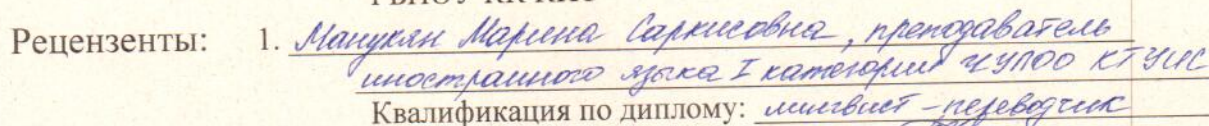 Рецензенты: 1. Манукян Марина Саркисовна, преподаватель
иностранного языка I категории ЧУПОО КТУИС
Квалификация по диплому: лингвист-переводчик